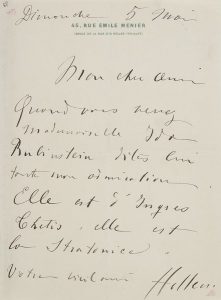 Dimanche 5 Mai
45, RUE EMILE MENIER
Mon cher ami
Quand vous verrez
Mademoiselle Ida
Rubinstein dites lui
toute mon admiration
Elle est d'Ingres
Thetis, elle est
la Stratonice.
Votre
Helleu